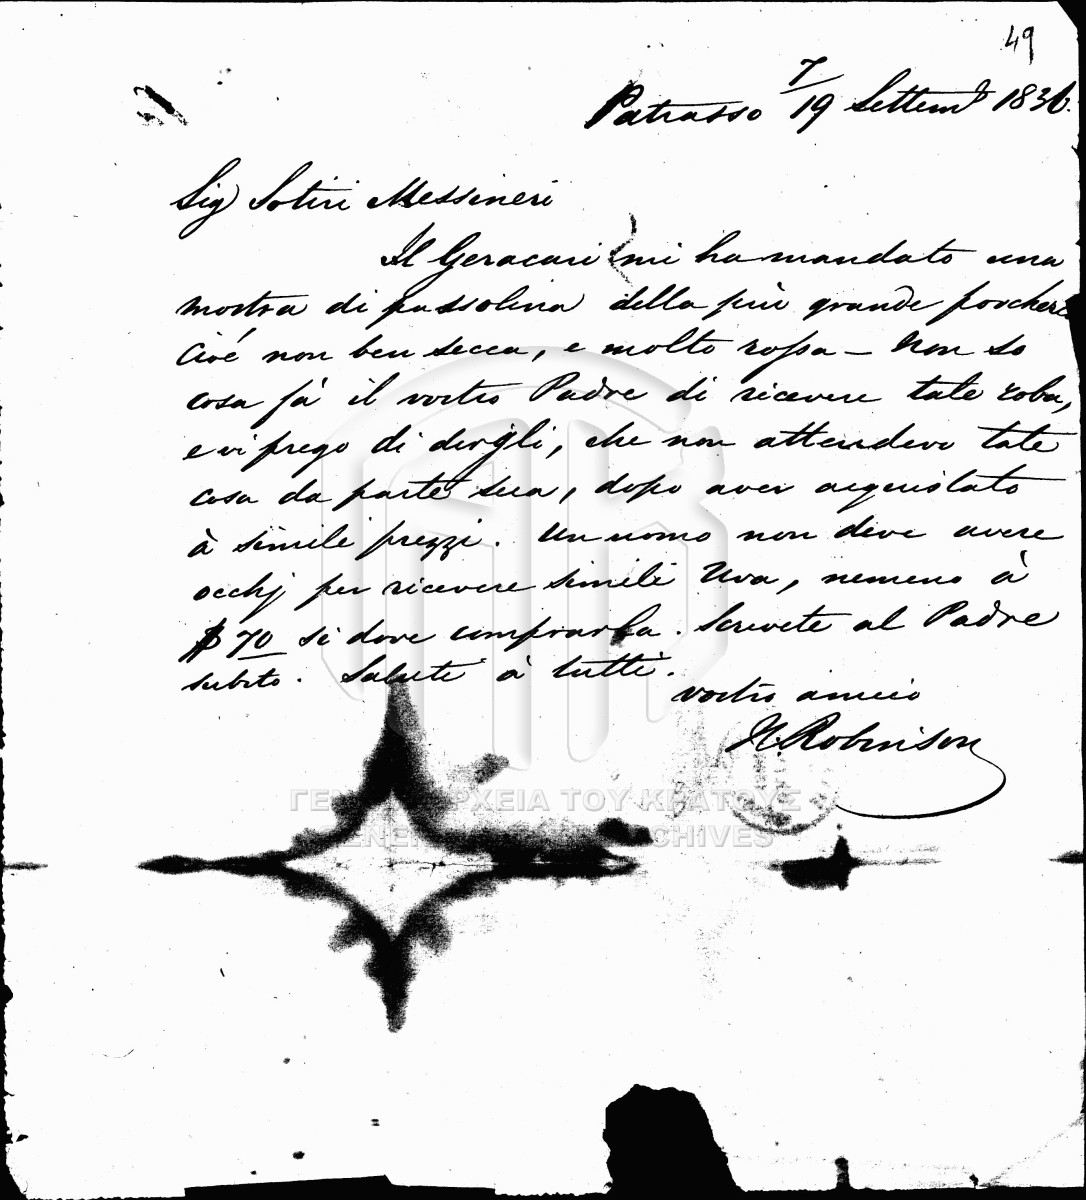 49
Patrasso 7/19 Settemb 1836.
Sig Sotiri Messineri
Il Geracari mi ha mandato una
mostra di passolina della più grande porcheria
Cioé non ben secca, e molto rossa — Non so
cosa fà il vostro Padre di ricevere tale roba,
e vi prego di dirgli, che non attendevo tale
cosa da parte sua, dopo aver acquistato
à simile prezzi. Un uomo non deve avere
occhj per ricevere simili Uva, nemeno à
$ 70 si dove comprarla. Scrivete al Padre
subito. Saluti à tutti.
vostro amico
H. Robinson
ΓΕΝΙΚΑ ΑΡΧΕΙΑ ΤΟΥ ΚΡΑΤΟΥΣ
GENERAL STATE ARCHIVES